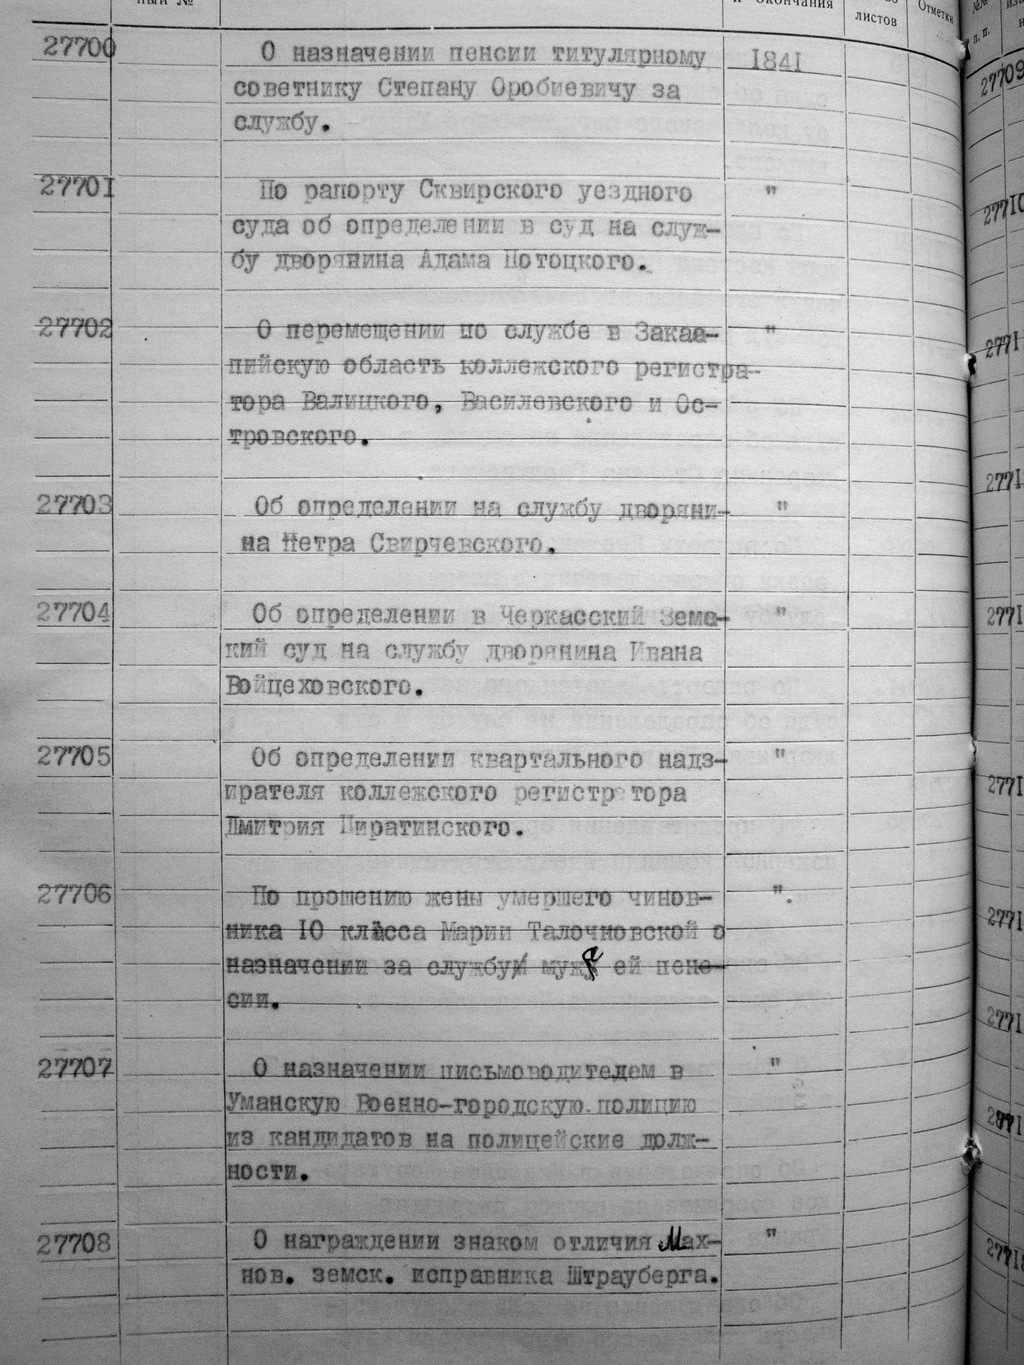 ный №
и окончания
листов
Отметки
№№
п. п.
27700 О назначении пенсии титулярному 1841
советнику Степану Оробиевичу за
службу.
27701 По рапорту Сквирского уездного "
суда об определении в суд на служ-
бу дворянина Адама Потоцкого.
27702 О перемещении по службе в Закас- "
пийскую область коллежского регистра-
тора Валицкого, Василевского и Ос-
тровского.
27703 Об определении на службу дворяни- "
на Петра Свирчевского.
27704 Об определении в Черкасский Земс- "
кий суд на службу дворянина Ивана
Войцеховского.
27705 Об определении квартального надз- "
ирателя коллежского регистратора
Дмитрия Пиратинского.
27706 По прошению жены умершего чинов- ".
ника 10 класса Марии Талочновской о
назначении за службу мужа ей пенс-
сии.
27707 О назначении письмоводителем в "
Уманскую Военно-городскую полицию
из кандидатов на полицейские долж-
ности.
27708 О награждении знаком отличия Мах- "
нов. земск. исправника Штрауберга.
27709
27710